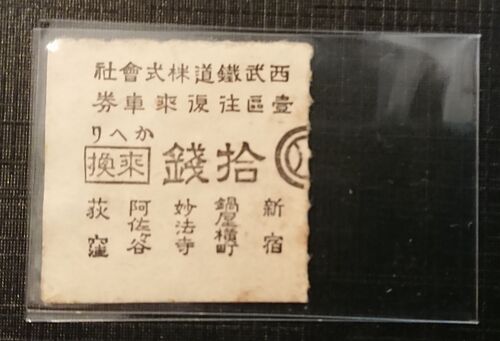 西武鐵道株式會社
壹區往復乘車券
かへり
拾錢
乘換
新宿
鍋屋横町
妙法寺
阿佐ヶ谷
荻窪